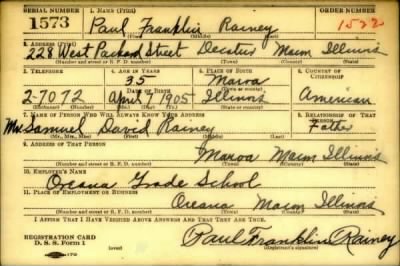 SERIAL NUMBER 1. NAME (Print)
1573 Paul Franklin Rainey 1522
2. ADDRESS (Print)
228 West Packard Street Decatur Macon Illinois
(Number and street or R. F. D. number) (Town) (County) (State)
3. TELEPHONE 4. AGE IN YEARS 5. PLACE OF BIRTH 6. COUNTRY OF CITIZENSHIP
35 Maroa
DATE OF BIRTH (Town or county)
2-7072 April 1905 Illinois American
(Exchange) (Number) (Mo.) (Day) (Yr.) (State or country)
7. NAME OF PERSON WHO WILL ALWAYS KNOW YOUR ADDRESS 8. RELATIONSHIP OF THAT PERSON
Mr. Samuel David Rainey Father
(Mr., Mrs., Miss) (First) (Middle) (Last)
9. ADDRESS OF THAT PERSON
Maroa Macon Illinois
(Number and street or R. F. D. number) (Town) (County) (State)
10. EMPLOYER'S NAME
Oreana Grade School
11. PLACE OF EMPLOYMENT OR BUSINESS
Oreana Macon Illinois
(Number and street or R. F. D. number) (Town) (County) (State)
I AFFIRM THAT I HAVE VERIFIED ABOVE ANSWERS AND THAT THEY ARE TRUE.
REGISTRATION CARD
D. S. S. Form 1 Paul Franklin Rainey
(Registrant's signature)